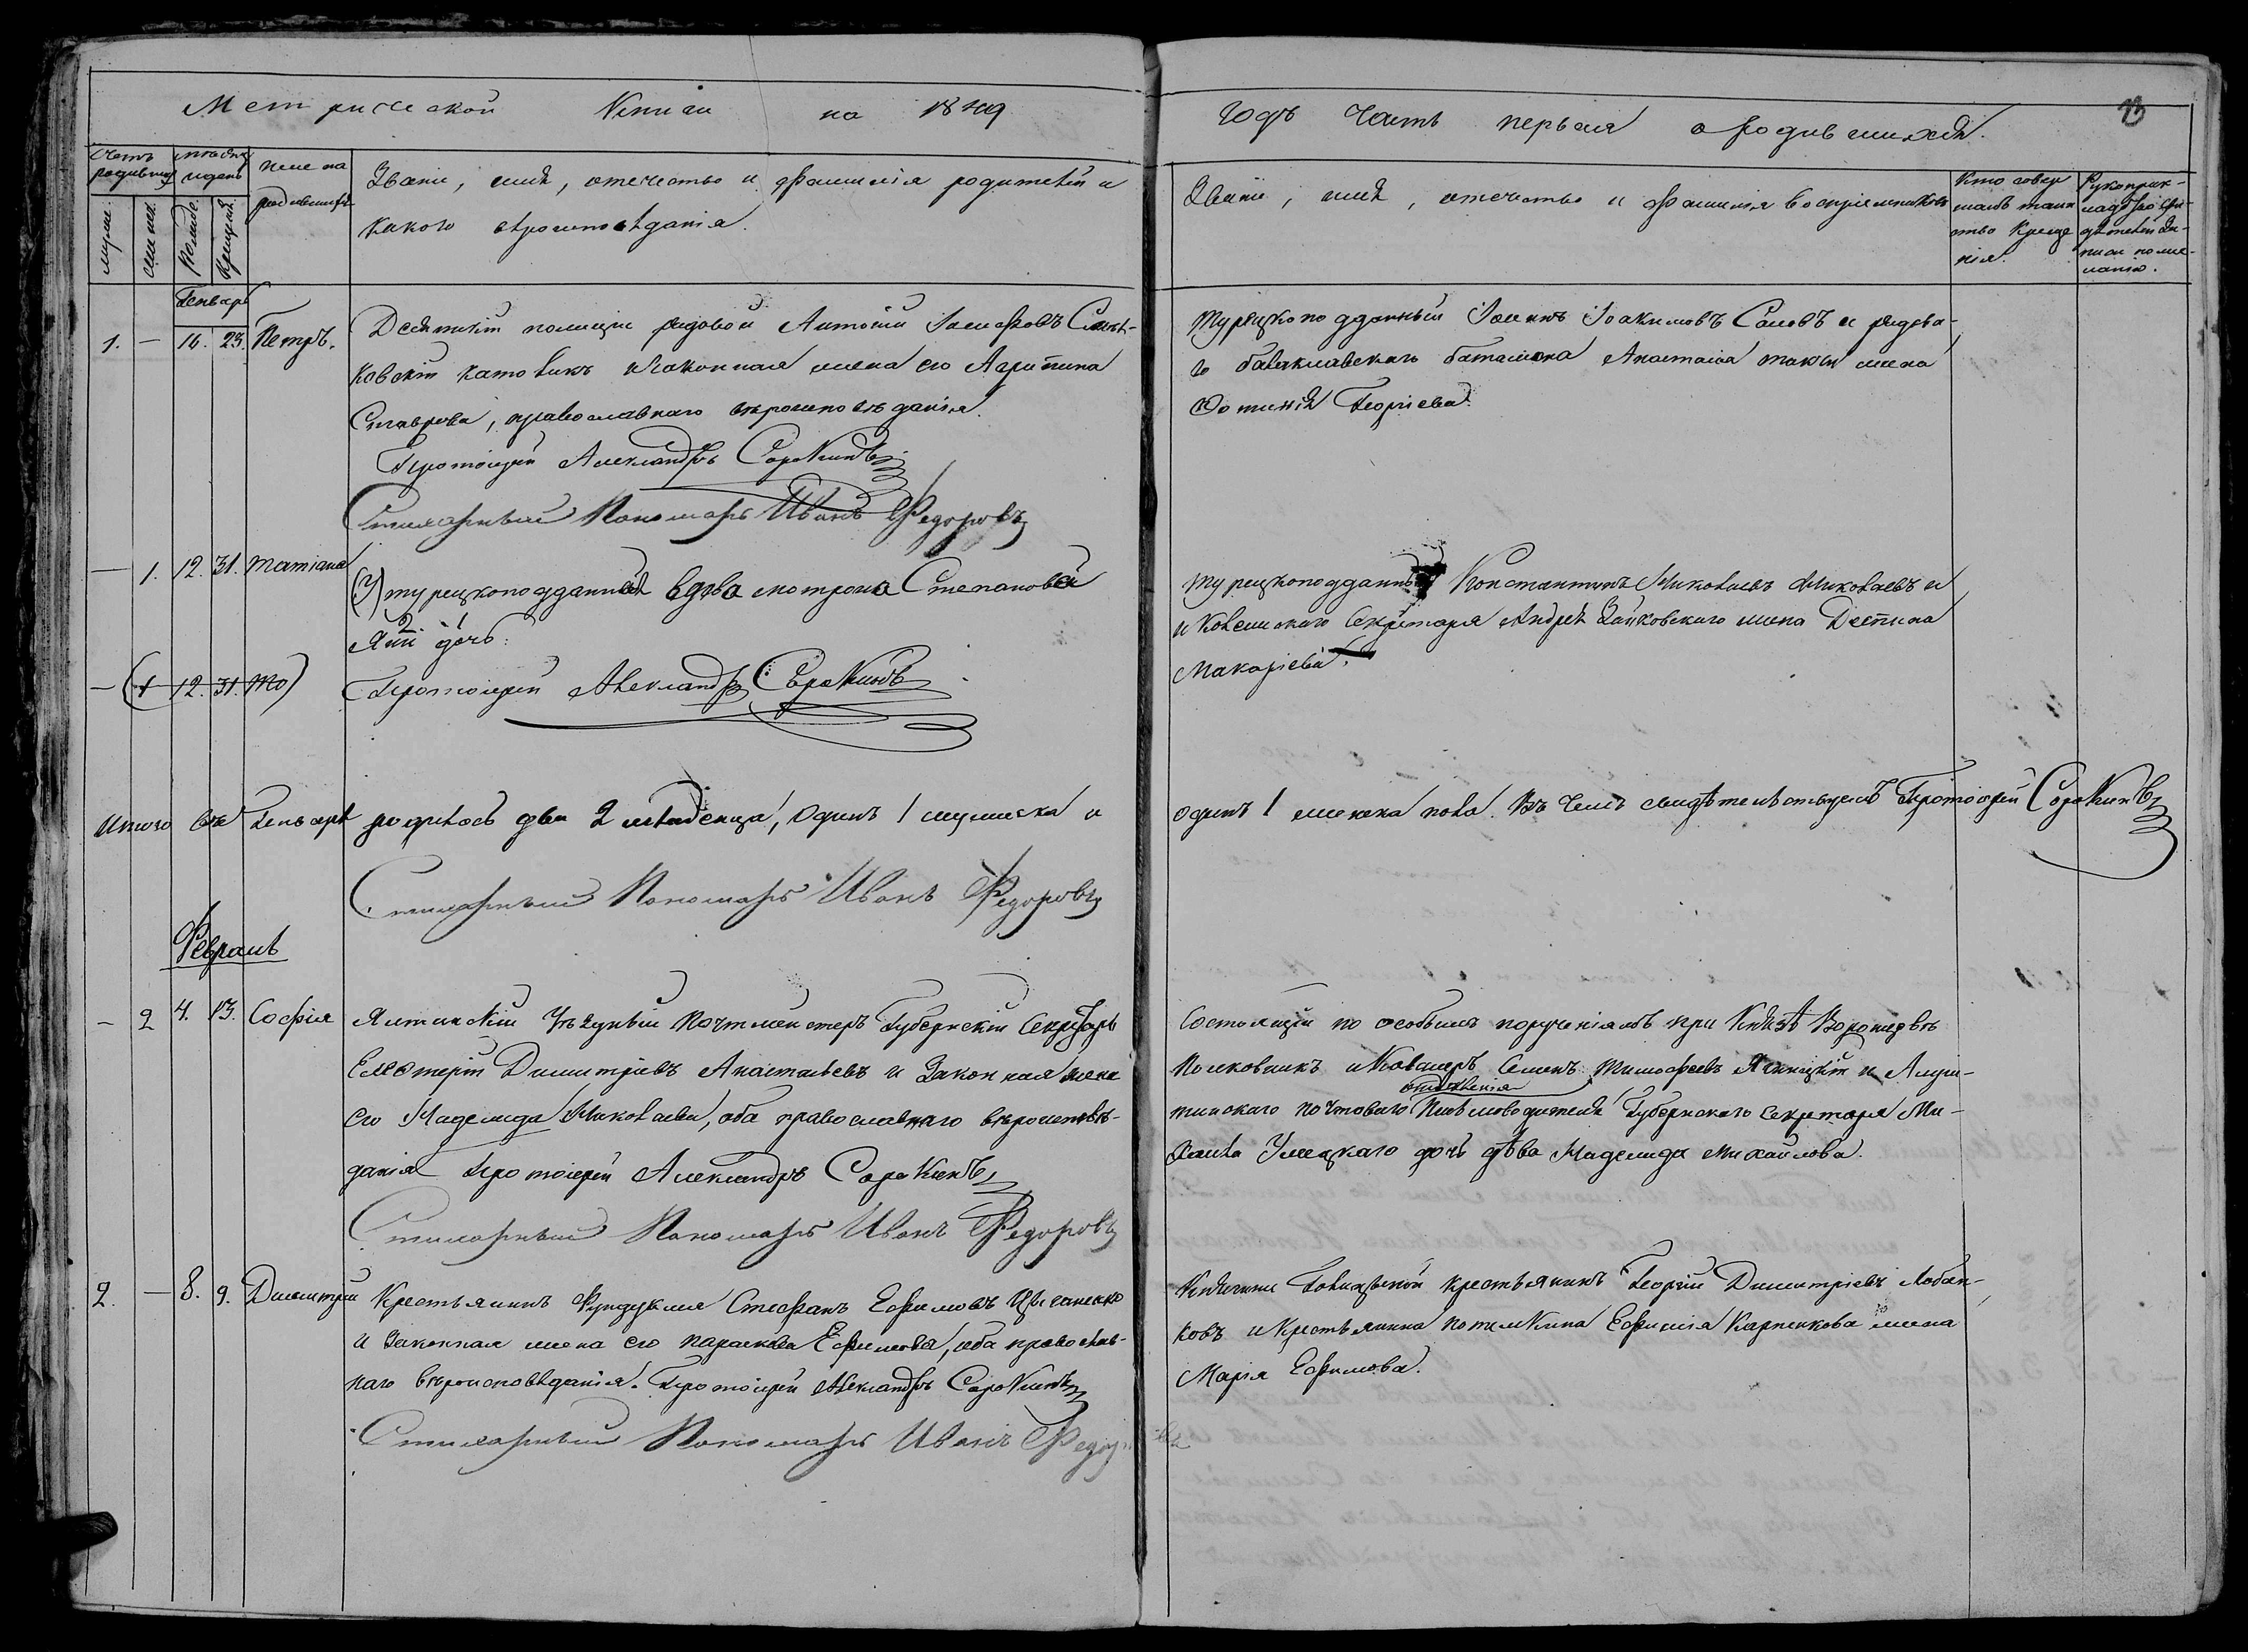 Метрической Книги на 1849
годъ Часть первая о родившихся.
13
Счетъ родившихся
мужес.
женск.
Мѣсяцъ и день
Рожден.
Крещен.
Имена родившихся
Званіе, имя, отечество и фамилія родителей и
какого вѣроисповѣданія.
Званіе, имя, отечество и фамилія воспріемниковъ
Кто совер
шалъ таин
ство Креще
нія.
Рукоприк-
ладство сви-
дѣтелей за-
писи по же-
ланію.
Генварь
1. — 16. 23. Петръ.
Десятскій полиціи рядовой Антоній Іосифовъ
ковскій католикъ и законная жена его Агрипина
Ставрова, православнаго вѣроисповѣданія.
Протоіерей Александръ Сорокинъ
Стихарный Пономарь Иванъ Федоровъ
Турецкоподданный Іоаннъ Іоакимовъ Саловъ и рядова-
го балаклавскаго баталіона Анастасія жена
Фотинія Георгіева.
— 1. 12. 31. Татіана
(У) турецкоподданной вдова мотрона Степановой
дочь.
— (1 12. 31. то)
Протоіерей Александръ Сорокинъ
Турецкоподданный Константинъ Николаевъ Николаевъ и
и Колежскаго Секретаря Андрея Зайковскаго жена Деспина
Макаріева.
Итого въ Генварѣ родилось два 2 младенца, одинъ 1 мужеска и
одинъ 1 женска пола. Въ чемъ свидѣтельствуемъ Протоіерей Сорокинъ
Стихарный Пономарь Иванъ Федоровъ
Февраль
— 2 4. 13. Софія
Ялтинскій Уѣздный Почтмейстеръ Губернскій Секретарь
Елевтерій Димитріевъ Анастасьевъ и Законная жена
его Надежда Николаева, оба православнаго вѣроисповѣ-
данія Протоіерей Александръ Сорокинъ
Стихарный Пономарь Иванъ Федоровъ
Состоящій по особымъ порученіямъ при Князѣ Воронцовѣ
Полковникъ и Кавалеръ Семенъ Тимофеевъ Яницкій и Алуш-
отдѣленія
тинскаго почтоваго Письмоводителя Губернскаго Секретаря Ми-
хаила Умецкаго дочь дѣва Надежда Михайлова.
2. — 8. 9. Димитрій
Крестьянинъ Фундуклея Стефанъ Ефимовъ Цыганенко
и Законная жена его параскева Ефимова, оба православ-
наго вѣроисповѣданія. Протоіерей Александръ Сорокинъ
Стихарный Пономарь Иванъ Федоровъ
Княгини Голицыной крестьянинъ Георгій Димитріевъ Лобан-
ковъ и Крестьянина потемкина Ефимія Карпенкова жена
Марія Ефимова.